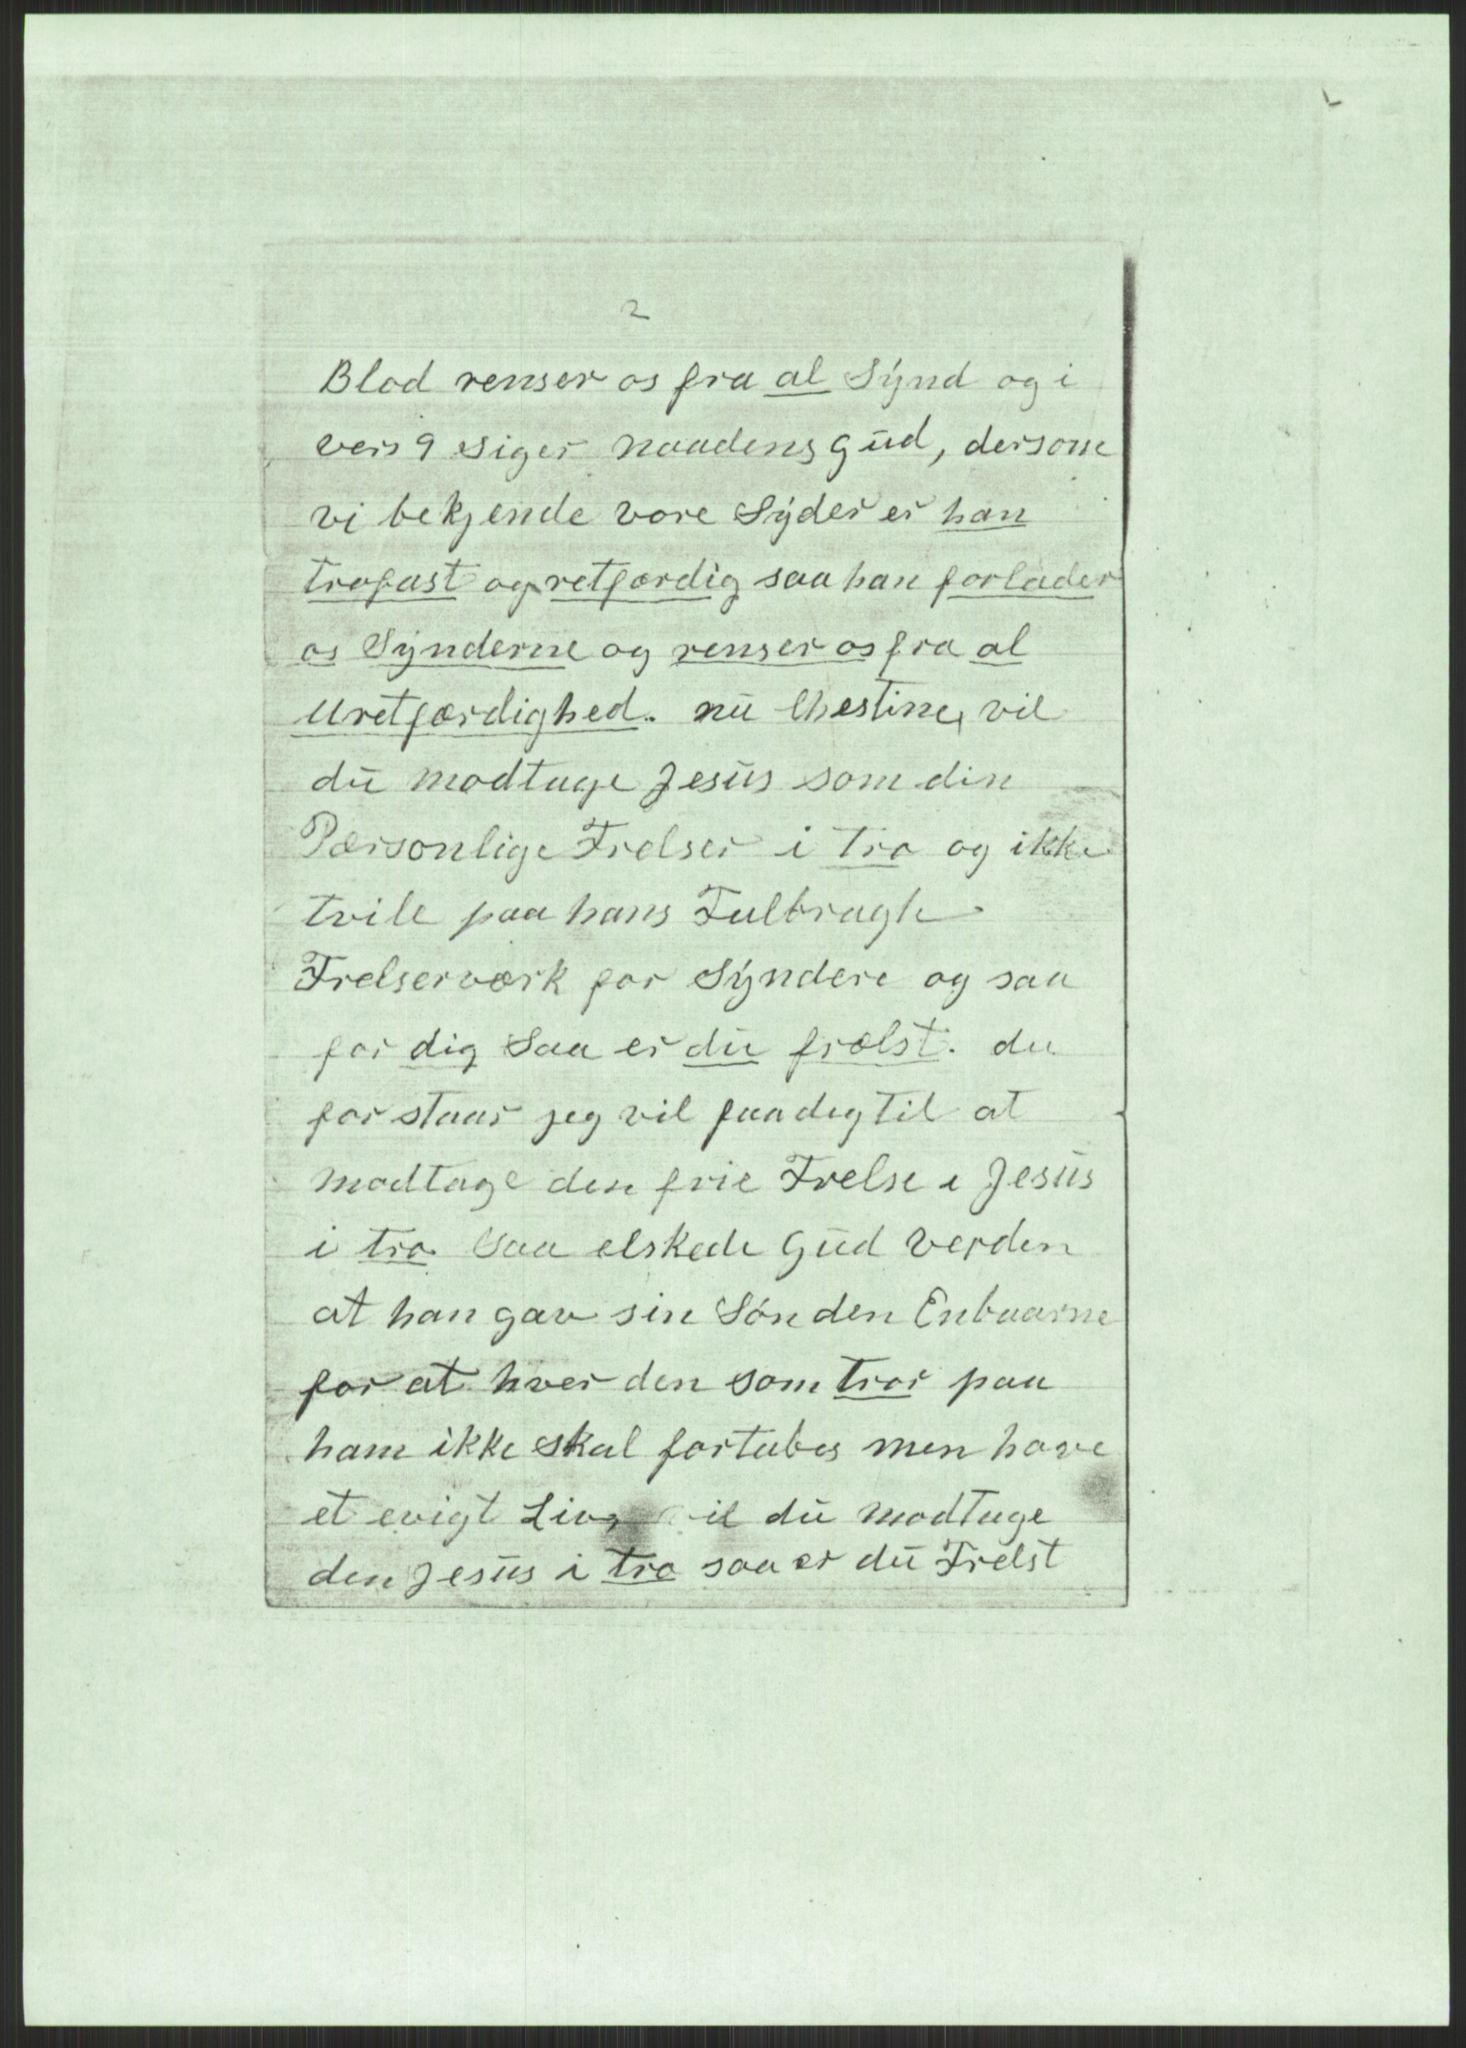 2
Blod renser os fra al Synd og i
vers 9 siger naadens Gud, dersom
vi bekjende vore Syder er han
trofast og retfærdig saa han forlader
os Synderne og renser os fra al
Uretfærdighed. nu vil
du modtage Jesus som din
Pærsonlige Frelser i tro og ikke
tvile paa hans Fulbragte
Frelserværk for Syndere og saa
for dig Saa er du frælst. du
forstaar jeg vil faa dig til at
modtage den frie Frelse i Jesus
i tro. Saa elskede Gud Verden
at han gav sin Søn den Enbaarne
for at hver den som tror paa
ham ikke skal fortabes men have
et evigt Liv, du modtage
den Jesus i tro saa er du Frelst